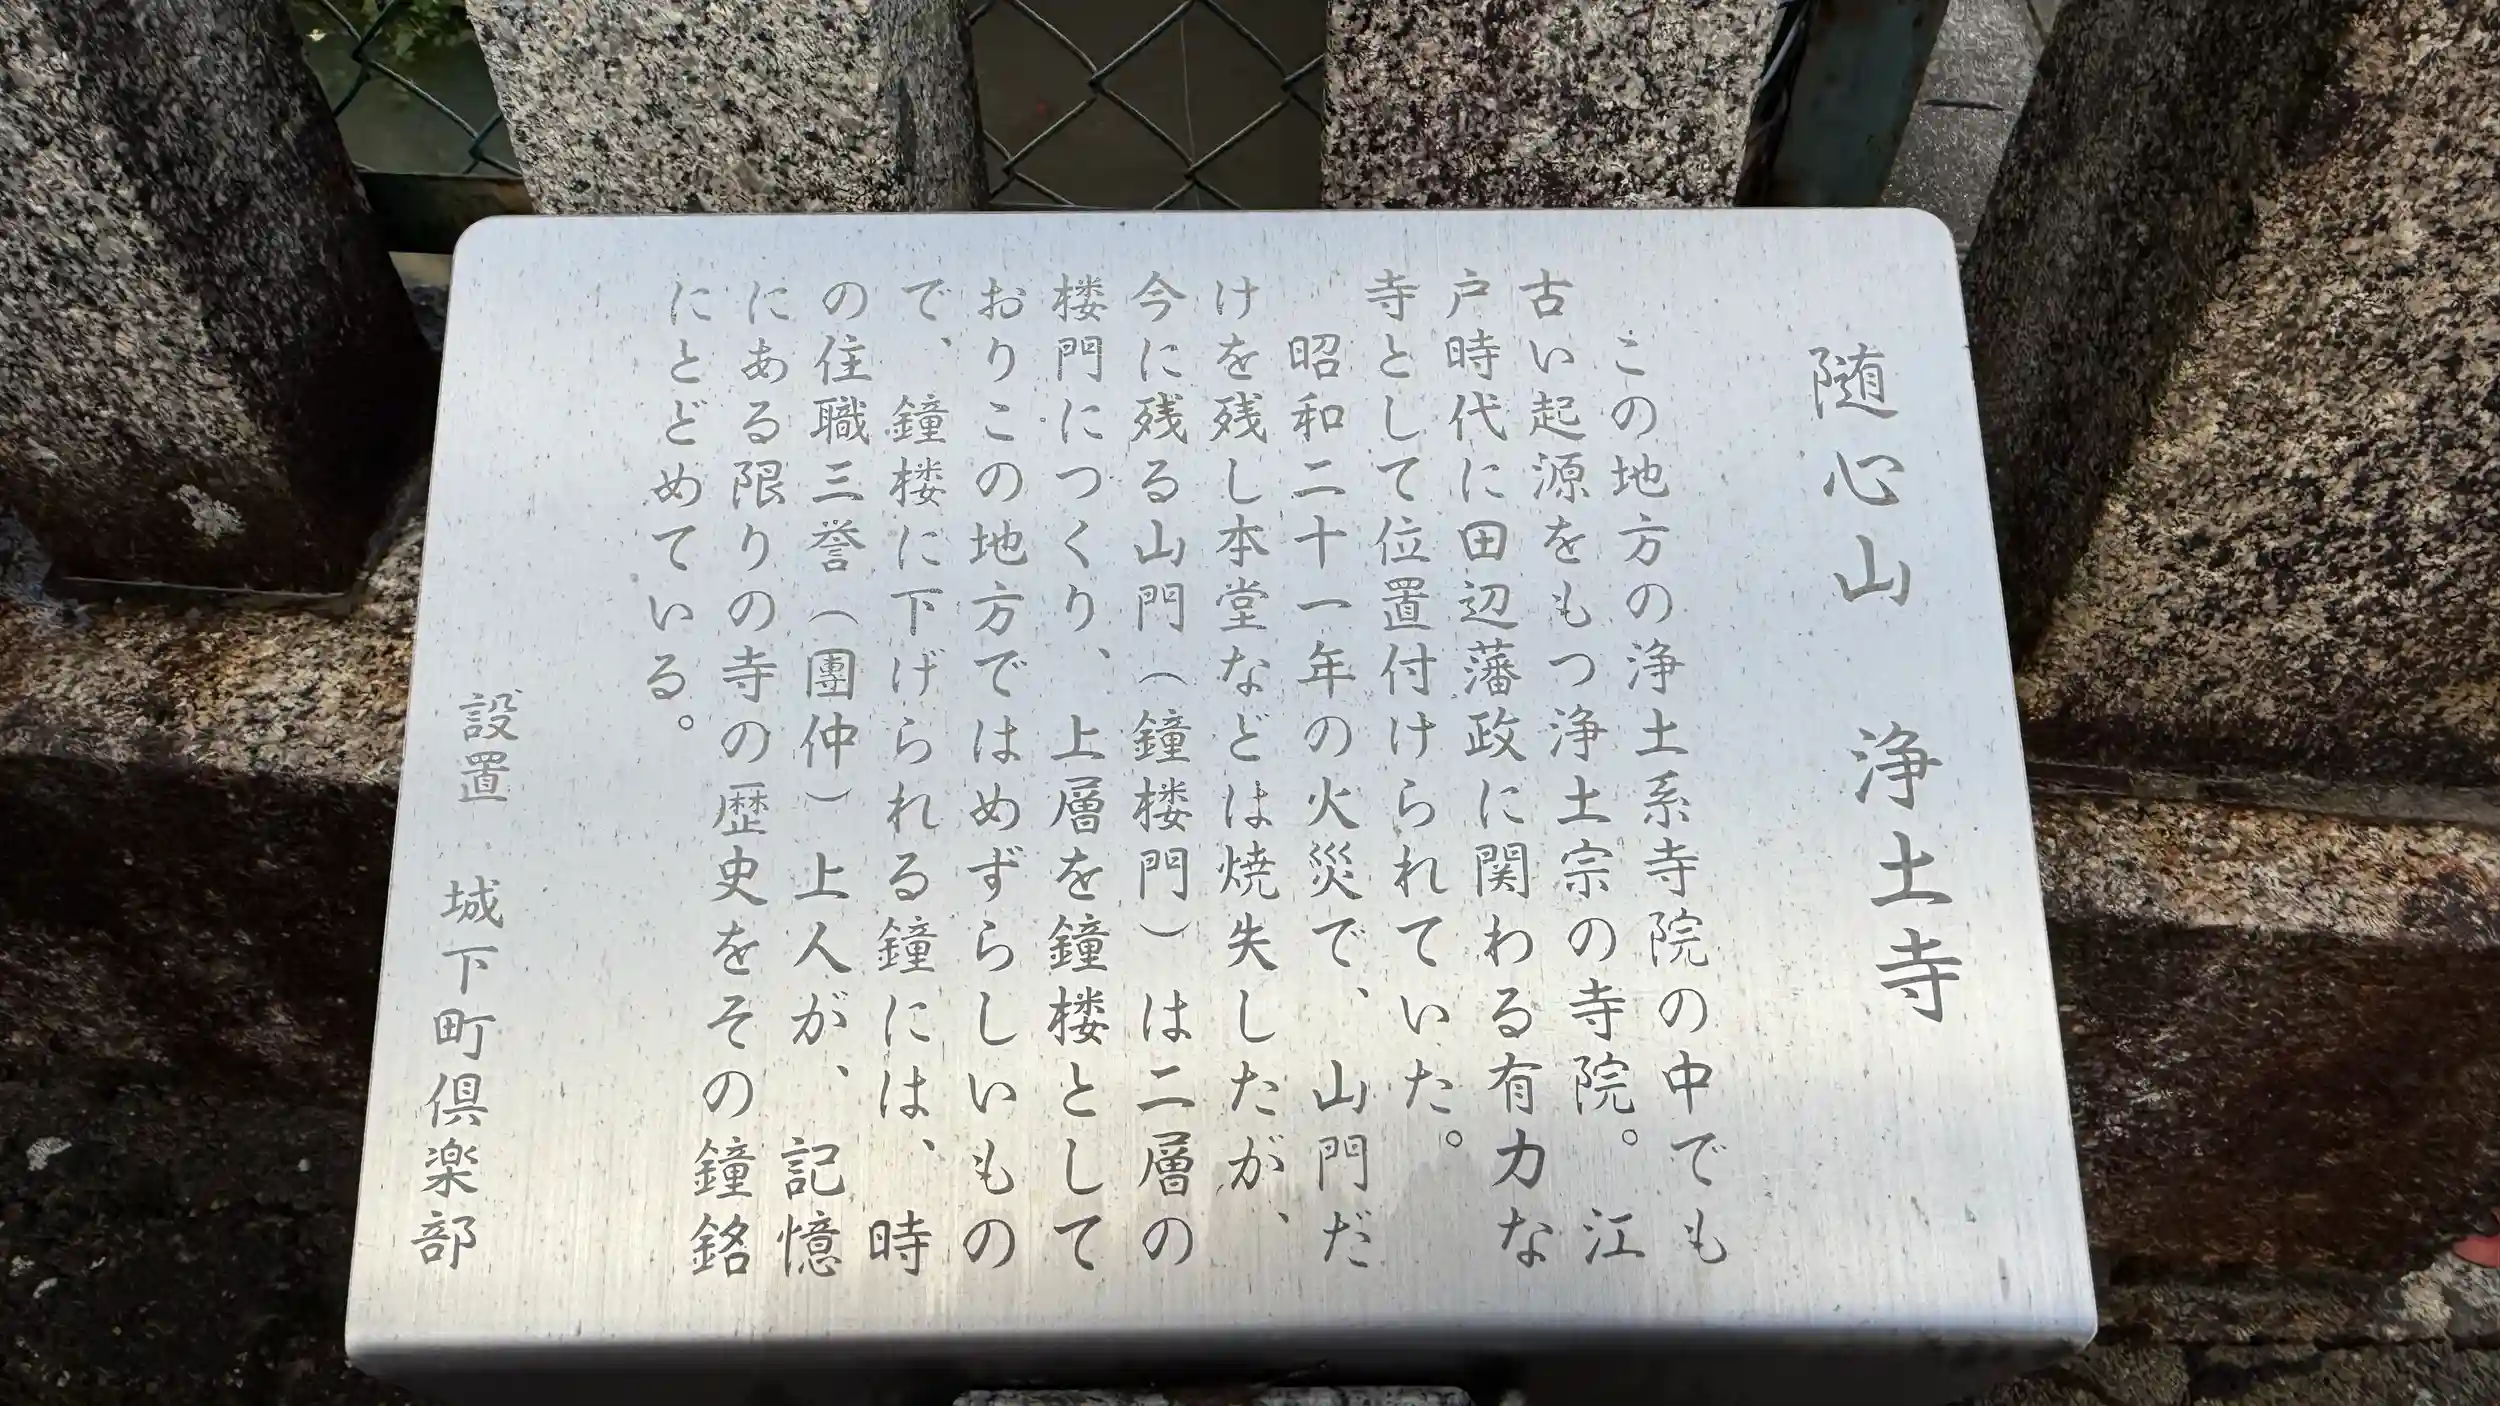 随心山 浄土寺
この地方の浄土系寺院の中でも
古い起源をもつ浄土宗の寺院。江
戸時代に田辺藩政に関わる有力な
寺として位置付けられていた。
昭和二十一年の火災で、山門だ
けを残し本堂などは焼失したが、
今に残る山門（鐘楼門）は二層の
楼門につくり、上層を鐘楼として
おりこの地方ではめずらしいもの
で、鐘楼に下げられる鐘には、時
の住職三誉（團仲）上人が、記憶
にある限りの寺の歴史をその鐘銘
にとどめている。
設置 城下町倶楽部